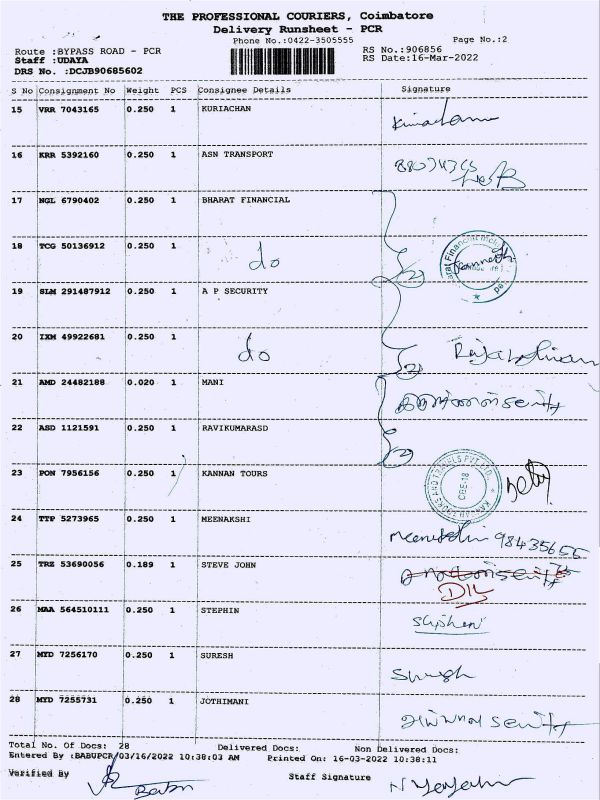 THE PROFESSIONAL COURIERS, Coimbatore
Delivery Runsheet - PCR
Phone No.:0422-3505555 Page No.:2
Route :BYPASS ROAD - PCR RS No.:906856
Staff :UDAYA RS Date:16-Mar-2022
DRS No. :DCJB90685602
S No Consignment No Weight PCS Consignee Details Signature
15 VRR 7043165 0.250 1 KURIACHAN
16 KRR 5392160 0.250 1 ASN TRANSPORT
17 NGL 6790402 0.250 1 BHARAT FINANCIAL
18 TCG 50136912 0.250 1 do
19 SLM 291487912 0.250 1 A P SECURITY
20 IXM 49922681 0.250 1 do
21 AMD 24482188 0.020 1 MANI
22 ASD 1121591 0.250 1 RAVIKUMARASD
23 PON 7956156 0.250 1 KANNAN TOURS
24 TTP 5273965 0.250 1 MEENAKSHI Meenakshi
25 TRZ 53690056 0.189 1 STEVE JOHN
26 MAA 564510111 0.250 1 STEPHIN Stephen
27 MYD 7256170 0.250 1 SURESH
28 MYD 7255731 0.250 1 JOTHIMANI
Total No. Of Docs: 28 Delivered Docs: Non Delivered Docs:
Entered By :BABUPCR/03/16/2022 10:38:03 AM Printed On: 16-03-2022 10:38:11
Verified By Babu Staff Signature